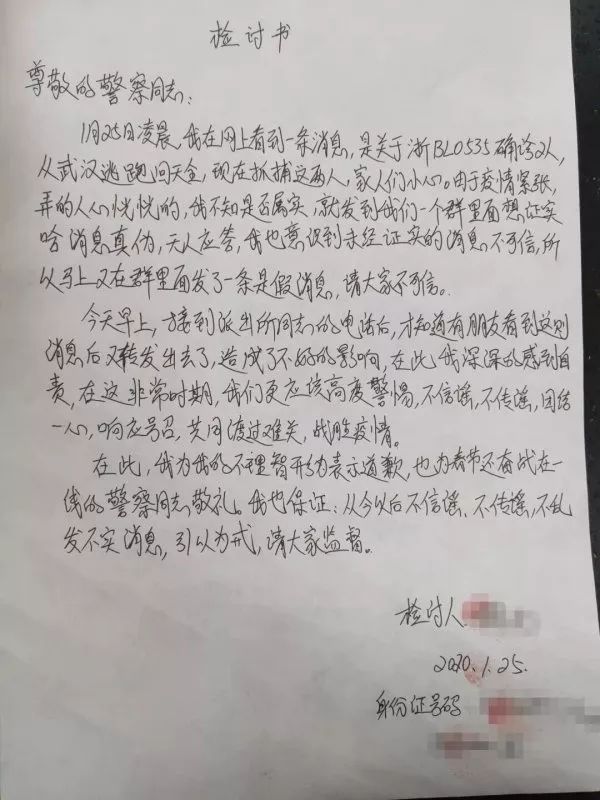 检讨书
尊敬的警察同志:
1月25日凌晨,我在网上看到一条消息,是关于浙BL0535确诊2人,
从武汉逃跑回天全,现在抓捕这两人,家人们小心。由于疫情紧张,
弄的人心恍恍的,我不知是否属实,就发到我们一个群里面想证实
哈消息真伪,无人应答,我也意识到未经证实的消息不可信,所
以马上又在群里面发了一条是假消息,请大家不可信。
今天早上,接到派出所同志的电话后,才知道有朋友看到这则
消息后又转发出去了,造成了不好的影响,在此我深深的感到自
责,在这非常时期,我们更应该高度警惕,不信谣,不传谣,团结
一心,响应号召,共同渡过难关,战胜疫情。
在此,我为我的不理智行为表示道歉,也为春节还奋战在一
线的警察同志敬礼。我也保证:从今以后不信谣、不传谣,不乱
发不实消息,引以为戒,请大家监督。
检讨人
2020.1.25.
身份证号码